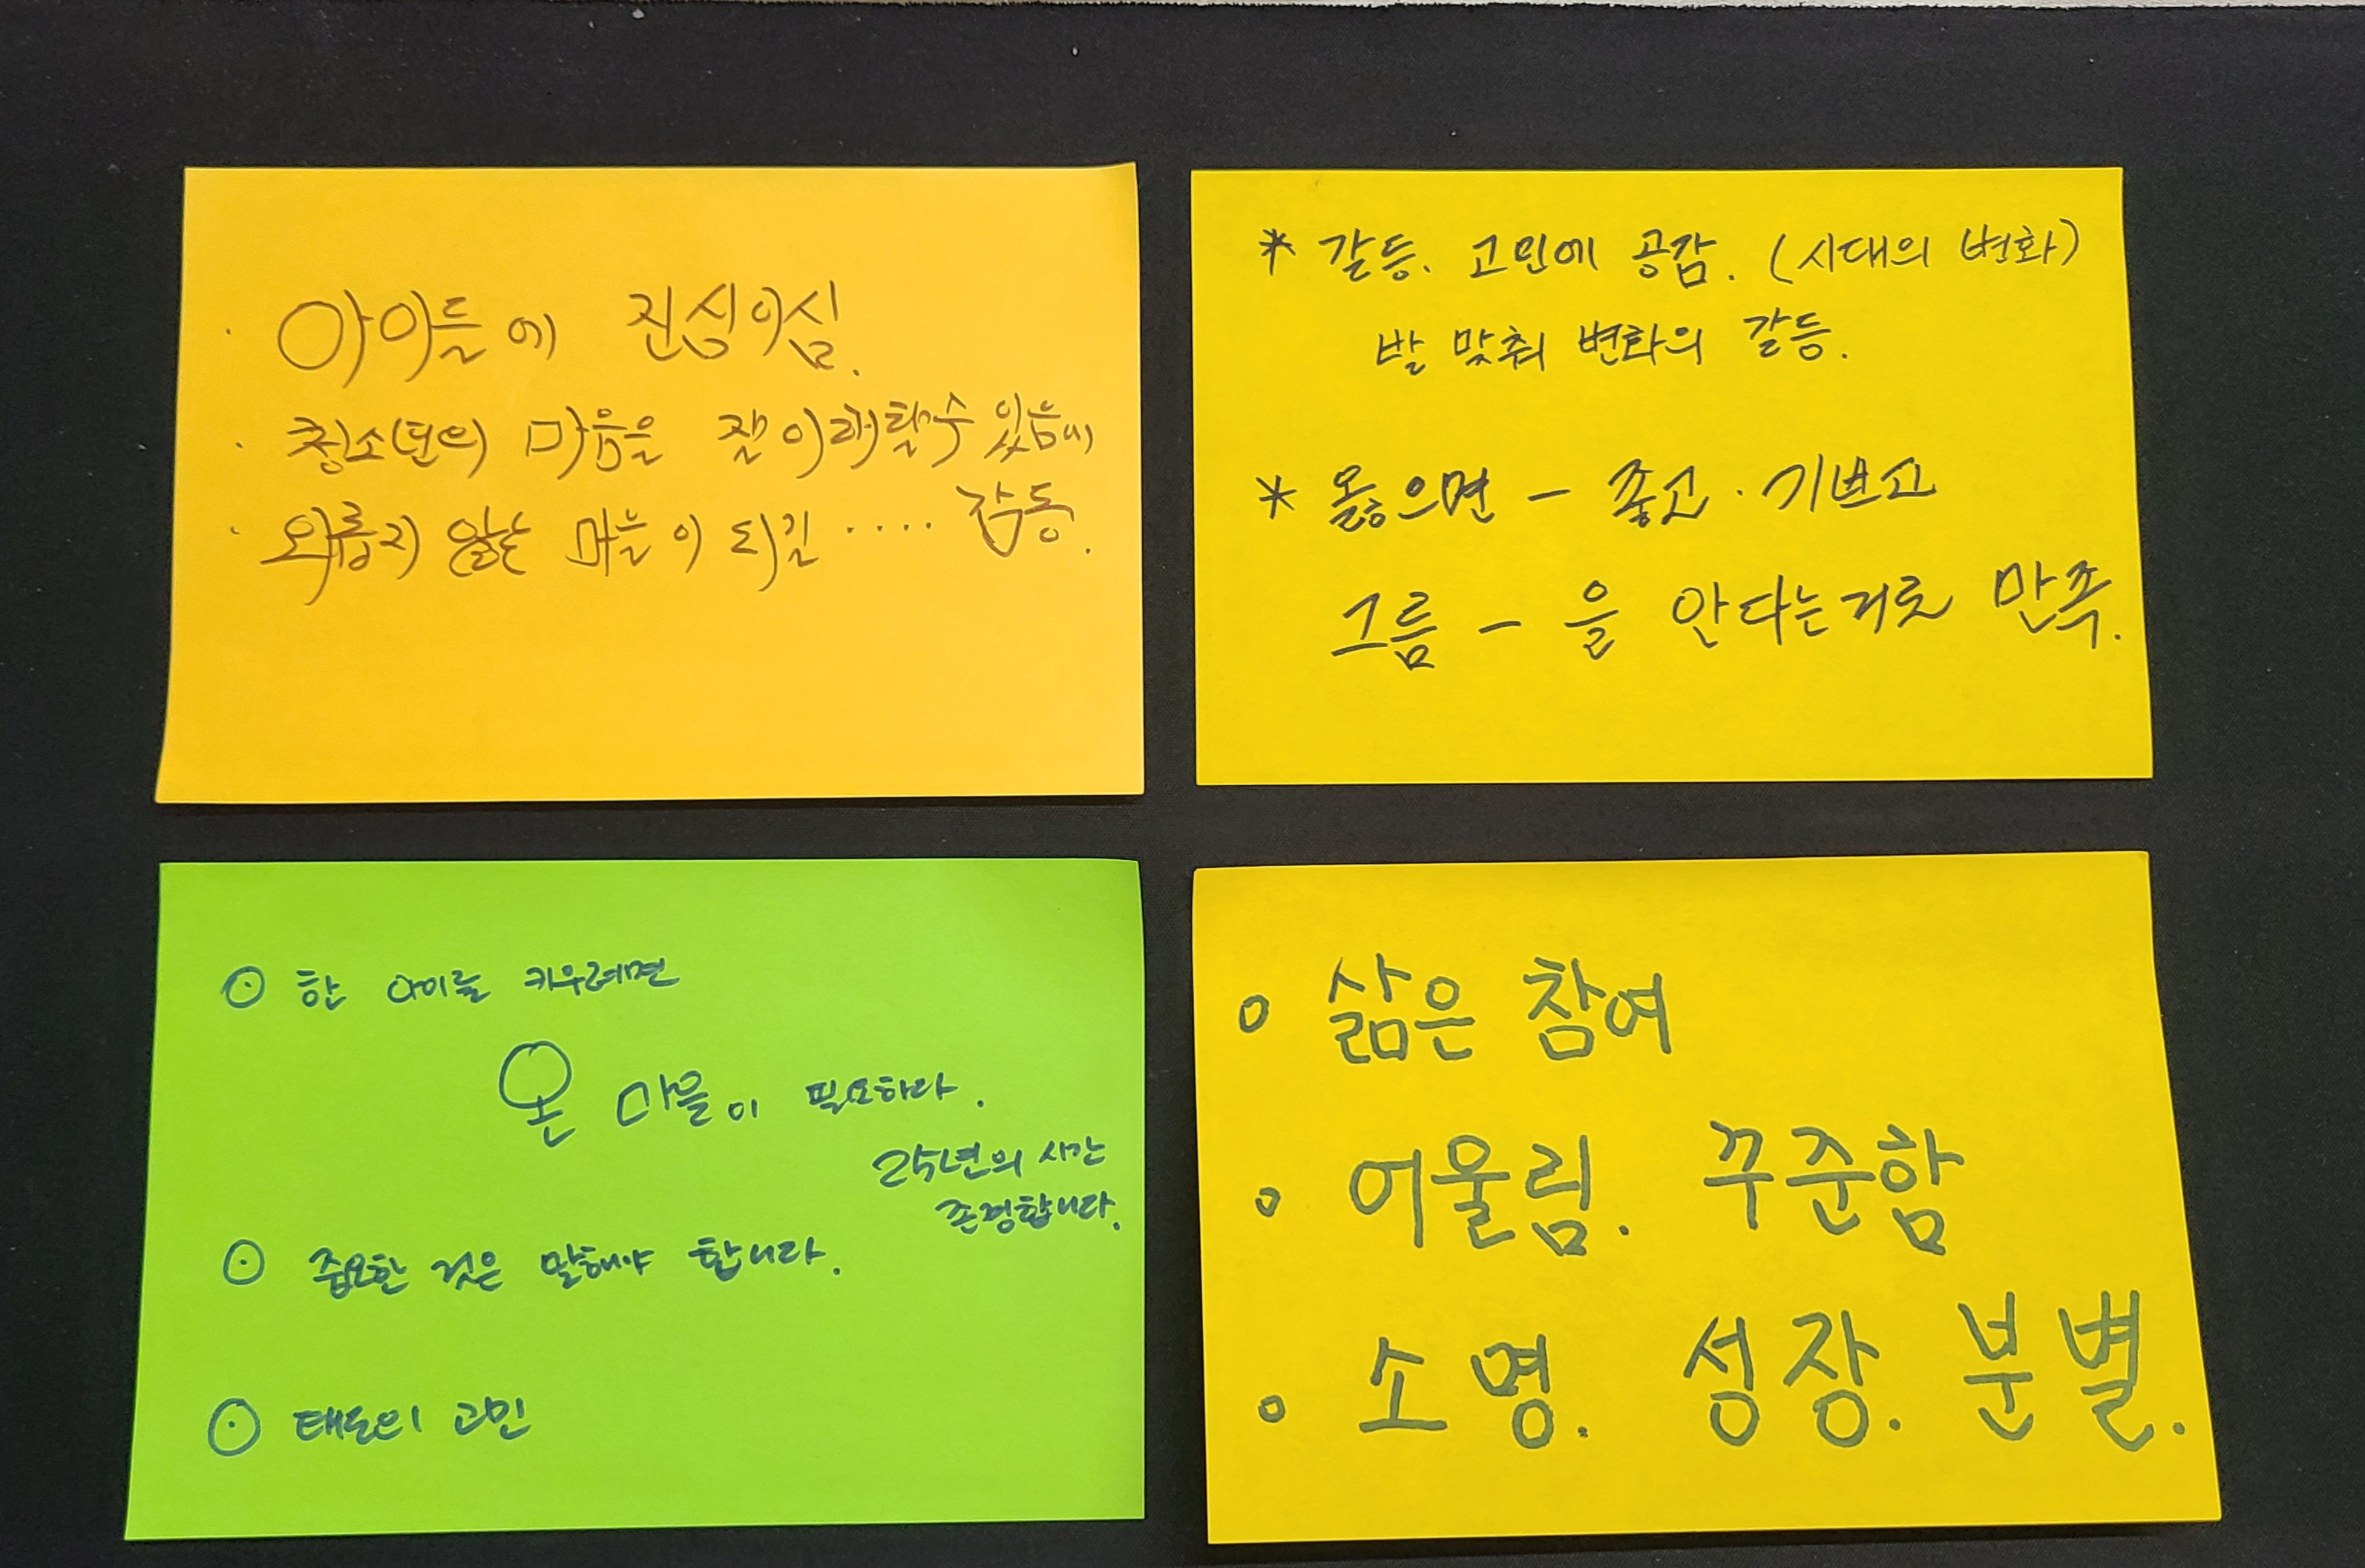 · 아이들에 진심이심.
· 청소년의 마음을 잘 이해할 수 있음에
· 외롭지 않은 마을이 되길 ···· 감동.
* 갈등. 고민에 공감. (시대의 변화)
발 맞춰 변화의 갈등.
* 옳으면 - 좋고 · 기쁘고
그름 - 을 안다는거로 만족.
⊙ 한 아이를 키우려면
온 마을이 필요하다.
25년의 시간
존경합니다.
⊙ 중요한 것은 말해야 합니다.
⊙ 태도의 고민
○ 삶은 참여
○ 어울림. 꾸준함
○ 소명. 성장. 분별.